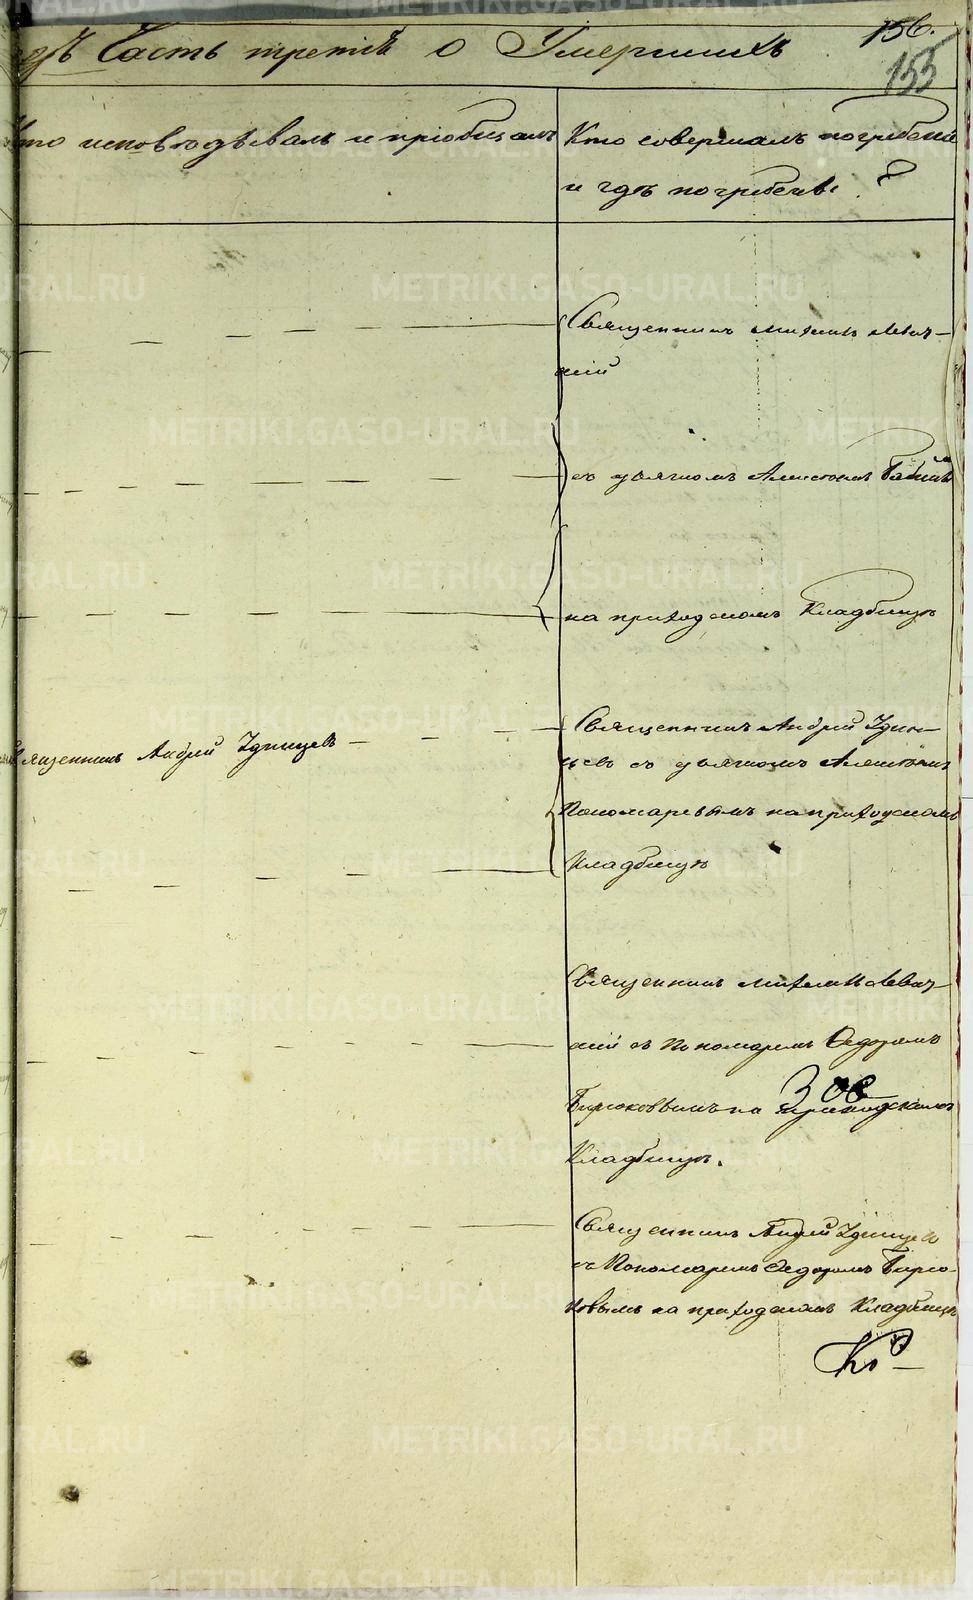 156.
155
Часть третія о Умершихъ
Кто исповѣдывалъ и пріобщалъ
Кто совершалъ погребеніе
и гдѣ погребены ?
Священникъ Михаилъ Левит-
скій
съ дьячкомъ Алексѣемъ
на приходскомъ кладбищѣ
Священникъ Андрей Удинцевъ
Священникъ Андрей Удин-
цевъ съ дьячкомъ Алексѣемъ
Пономаревымъ на приходскомъ
кладбищѣ
Священникъ Михаилъ Левит-
скій съ Пономаремъ Ѳедоромъ
Бирюковымъ на приходскомъ
кладбищѣ.
Священникъ Андрей Удинцевъ
съ Пономаремъ Ѳедоромъ Бирю-
ковымъ на приходскомъ кладбищѣ
METRIKI.GASO-URAL.RU